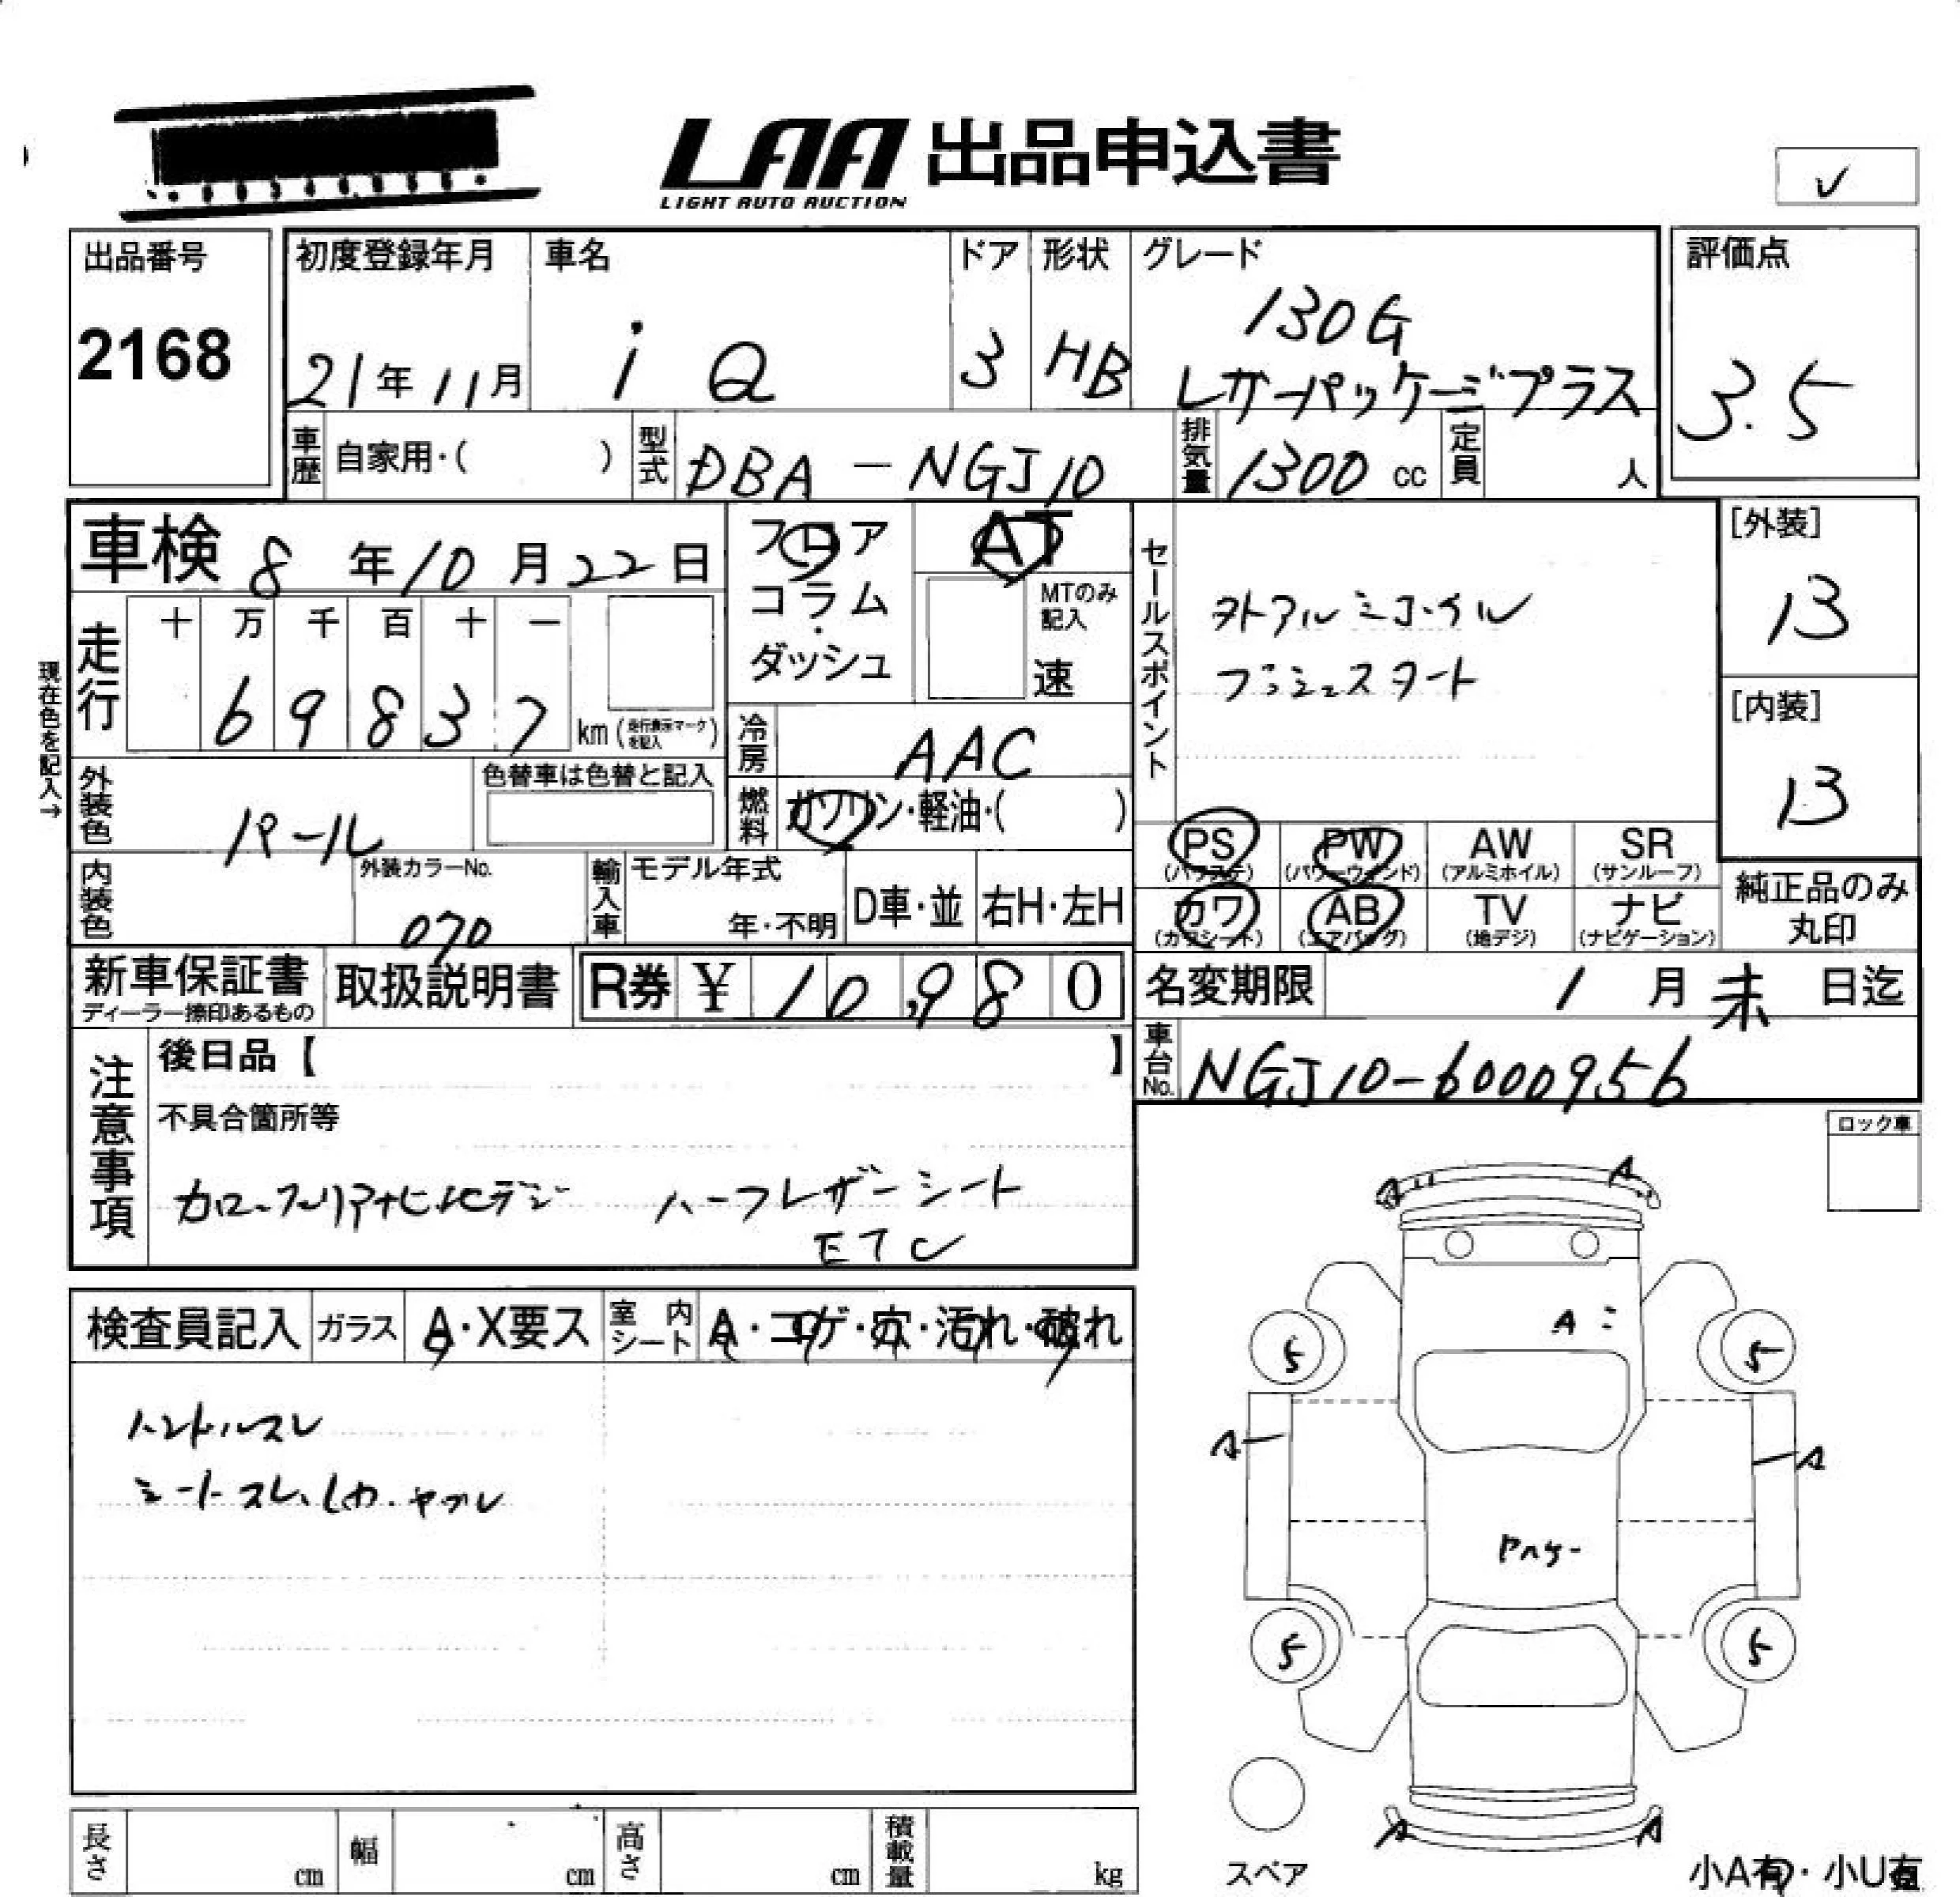 LAA 出品申込書
LIGHT AUTO AUCTION
✓
出品番号
2168
初度登録年月
21年11月
車名
iQ
ドア
3
形状
HB
グレード
130G
レザーパッケージプラス
評価点
3.5
車歴 自家用・( )
型式 DBA-NGJ10
排気量 1300 cc
定員 人
車検 8年10月22日
フロア
コラム・
ダッシュ
AT
MTのみ記入
速
現在色を記入→
走行 十 万 千 百 十 一
69837 km (走行表示マークを記入)
外装色 パール
色替車は色替と記入
内装色
外装カラーNo.
070
冷房 AAC
燃料 ガソリン・軽油・( )
輸入車 モデル年式
年・不明
D車・並
右H・左H
セールスポイント
外アルミホイル
プッシュスタート
PS (パワステ)
PW (パワーウィンド)
AW (アルミホイル)
SR (サンルーフ)
カワ (カワシート)
AB (エアバッグ)
TV (地デジ)
ナビ (ナビゲーション)
[外装]
13
[内装]
13
純正品のみ
丸印
新車保証書
ディーラー捺印あるもの
取扱説明書
R券 ¥ 10,980
名変期限 1月末日迄
車台No. NGJ10-6000956
注意事項
後日品【 】
不具合箇所等
カロ ナビ 地デジ ハーフレザーシート
ETC
ロック車
検査員記入
ガラス A・X要ス
室内シート A・コゲ・穴・汚れ・破れ
ハンドルスレ
シートスレ、シワ・ヤブレ
A A
A
5 5
A A
5 5
A A
スペア
長さ cm
幅 cm
高さ cm
積載量 kg
小A有・小U有